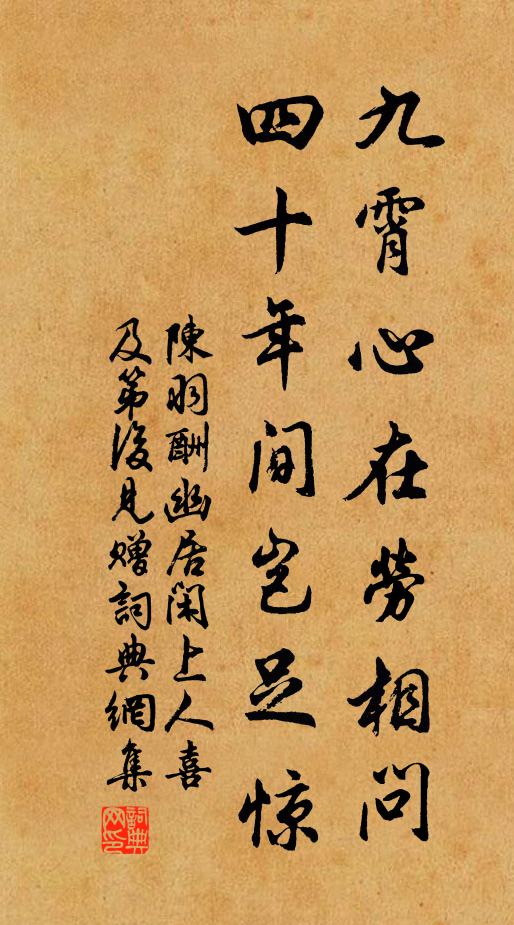 九霄心在勞相問
四十年間岂足惊
陳羽酬幽居閑上人喜
及第後見贈詞典網集
詞典网印